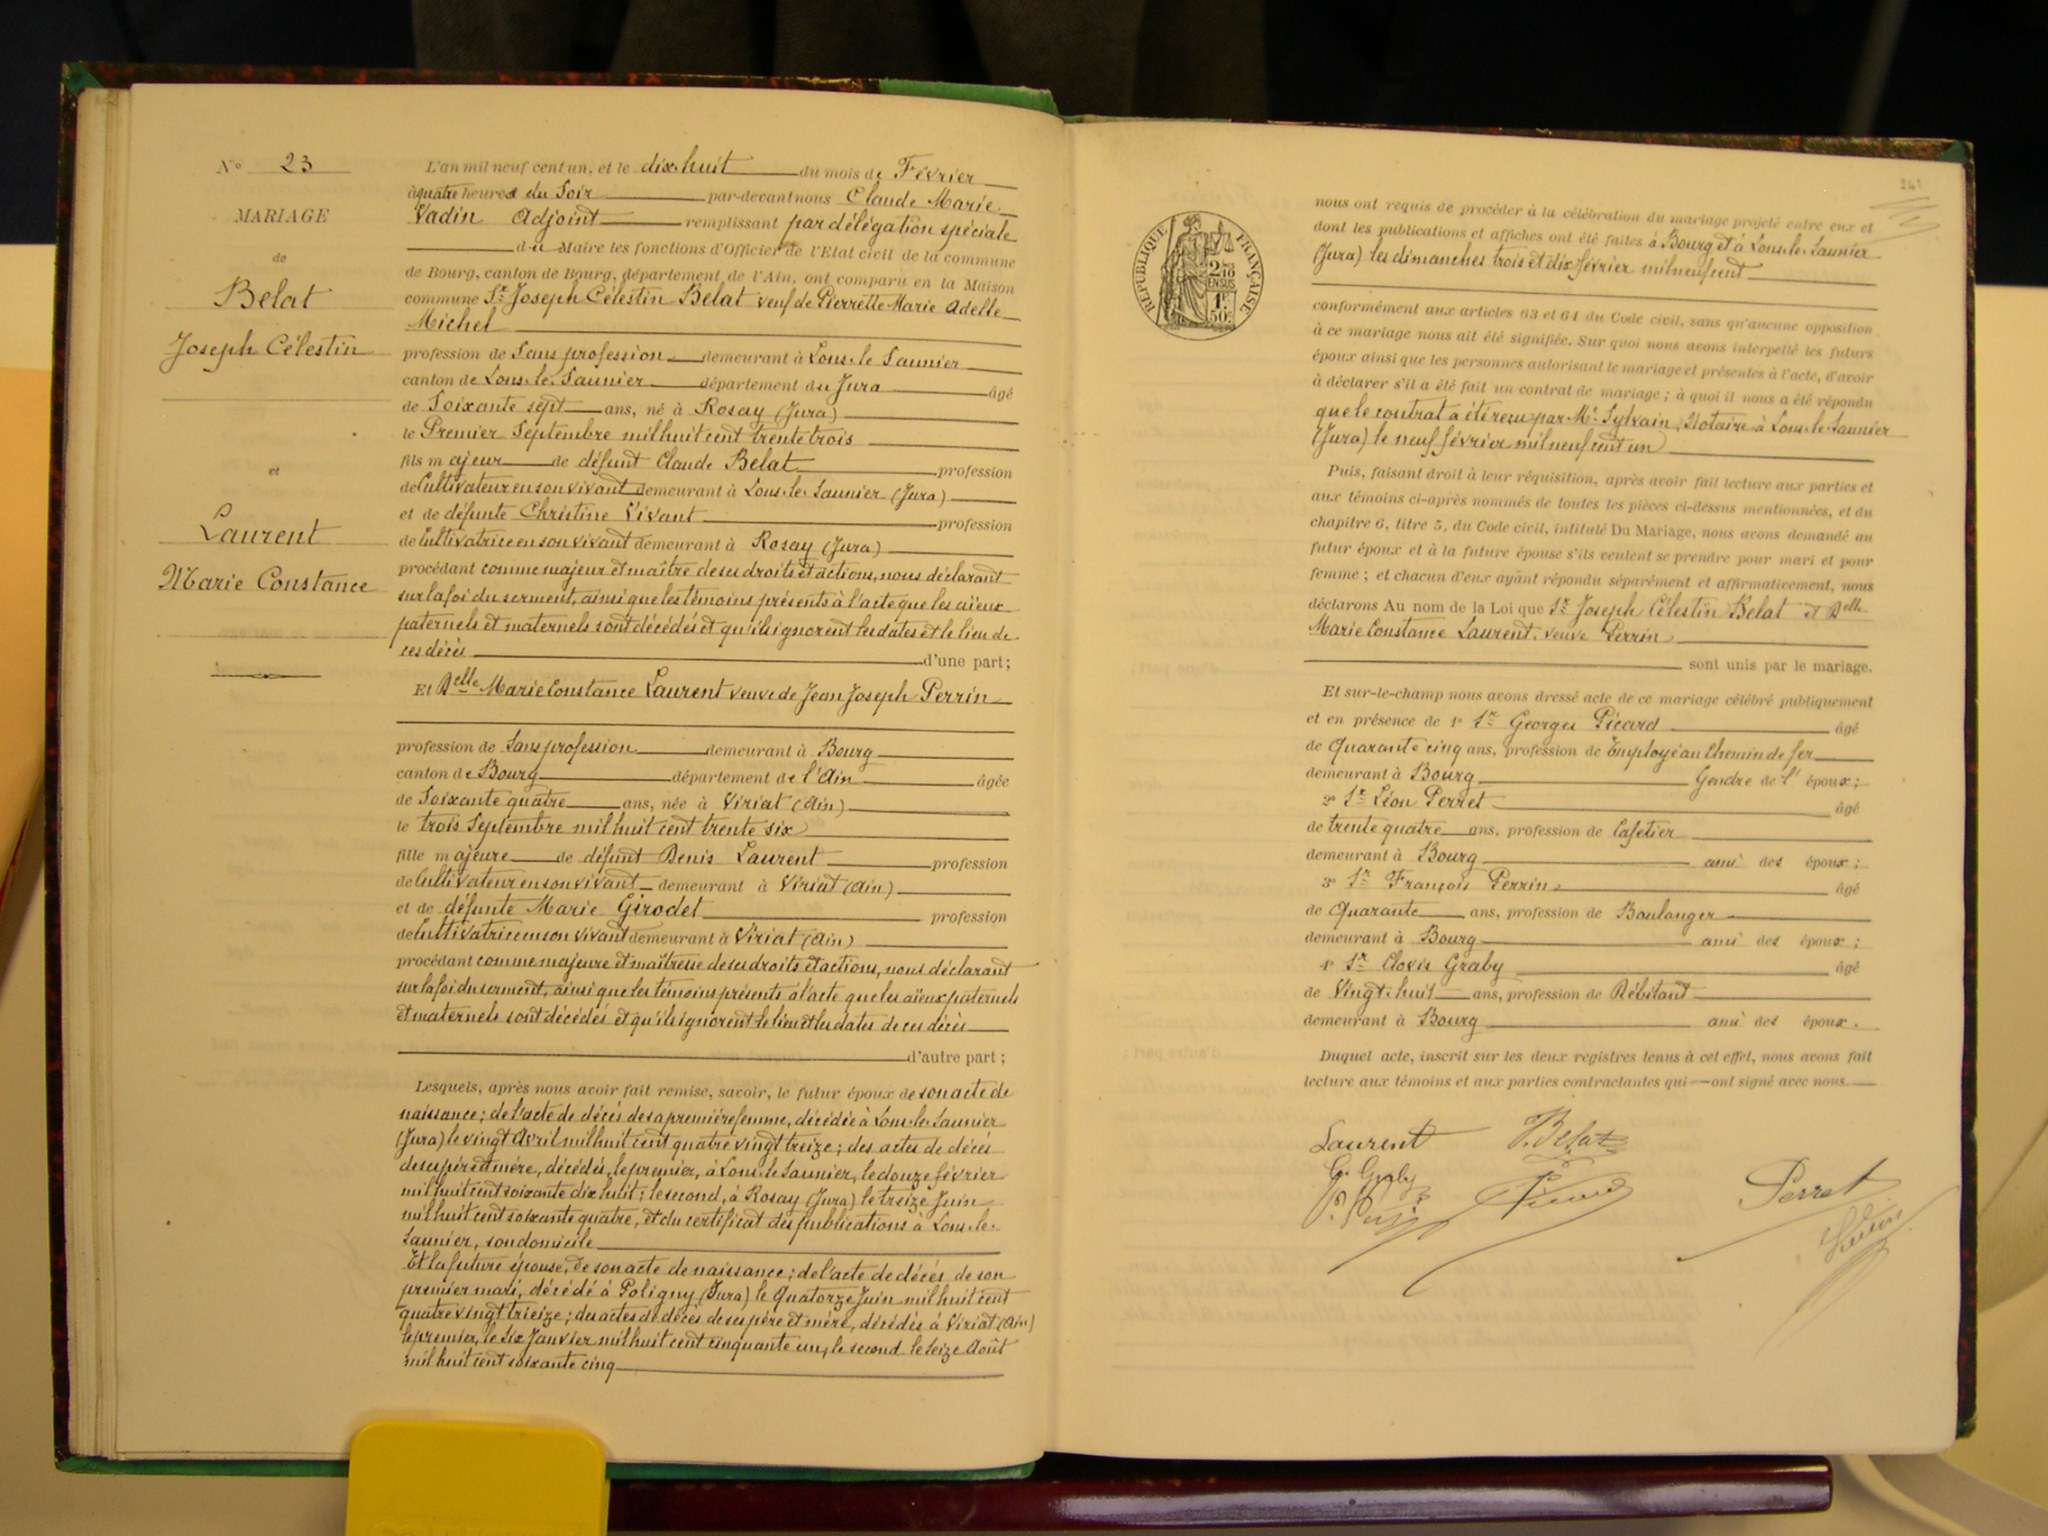 N° 23
MARIAGE
de
Belat
Joseph Célestin
et
Laurent
Marie Constance
L'an mil neuf cent un, et le dix-huit du mois de Février
à quatre heures du Soir par-devant nous Claude Marie
Vadin Adjoint remplissant par délégation spéciale
du Maire les fonctions d'Officier de l'Etat civil de la commune
de Bourg, canton de Bourg, département de l'Ain, ont comparu en la Maison
commune Sr Joseph Célestin Belat veuf de Pierrette Marie Adelle
Michel
profession de Sans profession demeurant à Lons-le-Saunier
canton de Lons-le-Saunier département du Jura âgé
de Soixante sept ans, né à Rosay (Jura)
le Premier Septembre mil huit cent trente trois
fils majeur de défunt Claude Belat profession
de Cultivateur en son vivant demeurant à Lons-le-Saunier (Jura)
et de défunte Christine Vivant profession
de Cultivatrice en son vivant demeurant à Rosay (Jura)
procédant comme majeur et maître de ses droits et actions, nous déclarant
sur la foi du serment, ainsi que les témoins présents à l'acte que les aïeux
paternels et maternels sont décédés et qu'ils ignorent les dates et le lieu de
ces décès d'une part;
Et Delle Marie Constance Laurent veuve de Jean Joseph Perrin
profession de Sans profession demeurant à Bourg
canton de Bourg département de l'Ain âgée
de Soixante quatre ans, née à Viriat (Ain)
le trois Septembre mil huit cent trente six
fille majeure de défunt Denis Laurent profession
de Cultivateur en son vivant demeurant à Viriat (Ain)
et de défunte Marie Girodet profession
de Cultivatrice en son vivant demeurant à Viriat (Ain)
procédant comme majeure et maîtresse de ses droits et actions, nous déclarant
sur la foi du serment, ainsi que les témoins présents à l'acte que les aïeux paternels
et maternels sont décédés et qu'ils ignorent le lieu et les dates de ces décès
d'autre part;
Lesquels, après nous avoir fait remise, savoir, le futur époux de son acte de
naissance; de l'acte de décès de sa première femme, décédée à Lons-le-Saunier
(Jura) le vingt Avril mil huit cent quatre vingt treize; des actes de décès
de ses père et mère, décédés, le premier, à Lons-le-Saunier, le douze février
mil huit cent soixante dix huit; le second, à Rosay (Jura) le treize Juin
mil huit cent soixante quatre, et du certificat des publications à Lons-le-
Saunier, son domicile
Et la future épouse, de son acte de naissance; de l'acte de décès de son
premier mari, décédé à Poligny (Jura) le Quatorze Juin mil huit cent
quatre vingt trieize; des actes de décès de ses père et mère, décédés à Viriat (Ain)
le premier, le six Janvier mil huit cent cinquante un, le second le seize Août
mil huit cent soixante cinq
241
RÉPUBLIQUE FRANÇAISE
2/10
EN SUS
1F
50c
nous ont requis de procéder à la célébration du mariage projeté entre eux et
dont les publications et affiches ont été faites à Bourg et à Lons-le-Saunier
(Jura) les dimanches trois et dix février mil neuf cent
conformément aux articles 63 et 64 du Code civil, sans qu'aucune opposition
à ce mariage nous ait été signifiée. Sur quoi nous avons interpellé les futurs
époux ainsi que les personnes autorisant le mariage et présentes à l'acte, d'avoir
à déclarer s'il a été fait un contrat de mariage; à quoi il nous a été répondu
que le contrat a été reçu par Me Sylvain, Notaire à Lons-le-Saunier
(Jura) le neuf février mil neuf cent un
Puis, faisant droit à leur réquisition, après avoir fait lecture aux parties et
aux témoins ci-après nommés de toutes les pièces ci-dessus mentionnées, et du
chapitre 6, titre 5, du Code civil, intitulé Du Mariage, nous avons demandé au
futur époux et à la future épouse s'ils veulent se prendre pour mari et pour
femme; et chacun d'eux ayant répondu séparément et affirmativement, nous
déclarons Au nom de la Loi que Sr Joseph Célestin Belat et Delle
Marie Constance Laurent, veuve Perrin
sont unis par le mariage.
Et sur-le-champ nous avons dressé acte de ce mariage célébré publiquement
et en présence de 1° Sr Georges Picard âgé
de Quarante cinq ans, profession de Employé au Chemin de fer
demeurant à Bourg Gendre de l'époux;
2° Sr Léon Perret âgé
de trente quatre ans, profession de Cafetier
demeurant à Bourg ami des époux;
3° Sr François Perrin âgé
de Quarante ans, profession de Boulanger
demeurant à Bourg ami des époux;
4° Sr Clovis Graby âgé
de Vingt-huit ans, profession de Débitant
demeurant à Bourg ami des époux.
Duquel acte, inscrit sur les deux registres tenus à cet effet, nous avons fait
lecture aux témoins et aux parties contractantes qui ont signé avec nous
Laurent Belat
Graby
Picard
Perret